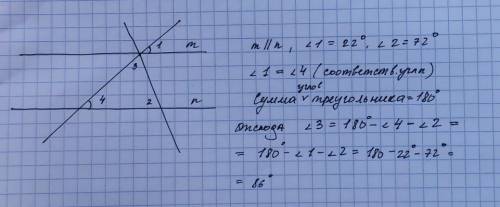 1
m
3
4
2
n
m || n, ∠1 = 22°, ∠2 = 72°
∠1 = ∠4 (соответств. углы)
углов
Сумма ∨ треугольника = 180°
Отсюда ∠3 = 180° - ∠4 - ∠2 =
= 180° - ∠1 - ∠2 = 180 - 22° - 72° =
= 86°